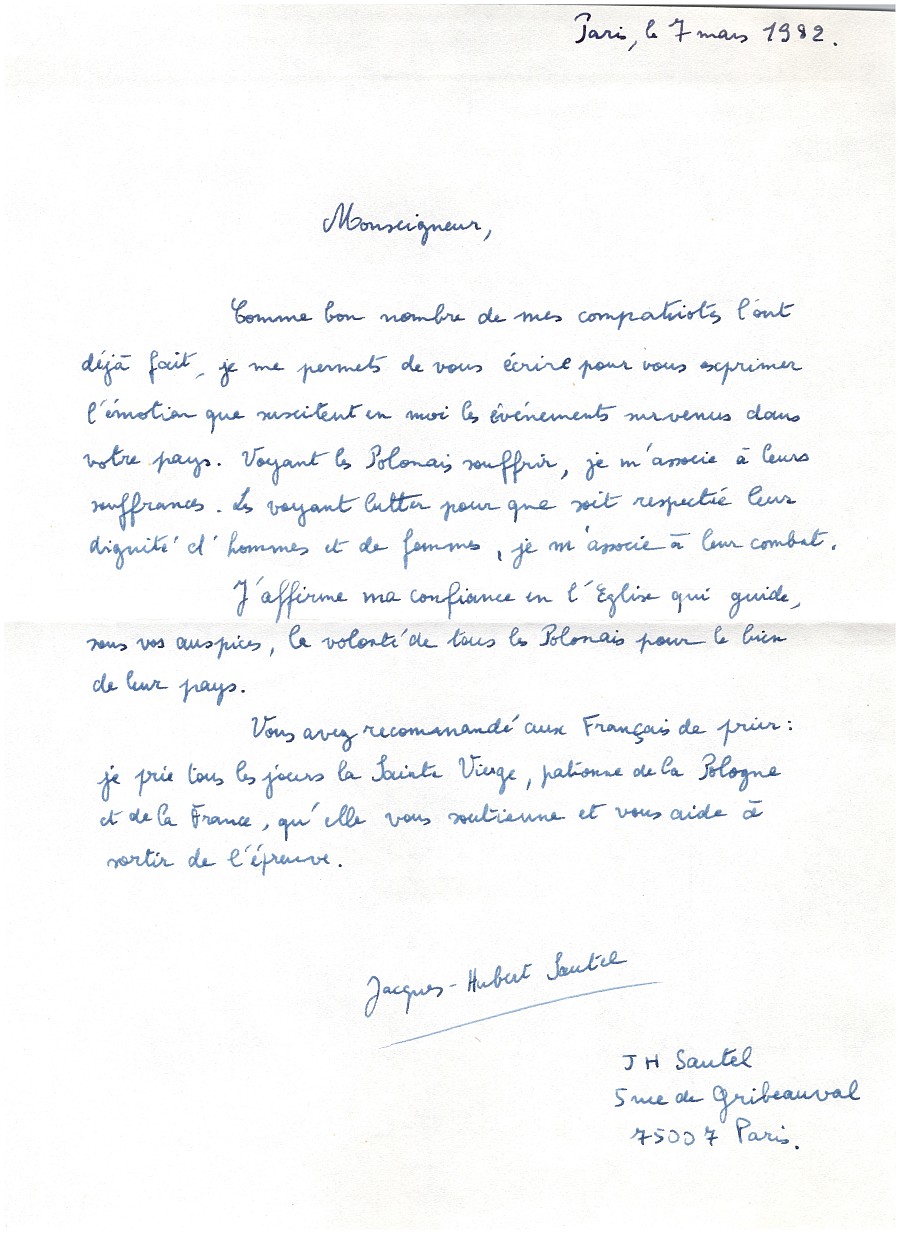 Paris, le 7 mars 1982.
Monseigneur,
Comme bon nombre de mes compatriotes l'ont
déjà fait, je me permets de vous écrire pour vous exprimer
l'émotion que suscitent en moi les événements survenus dans
votre pays. Voyant les Polonais souffrir, je m'associe à leurs
souffrances. Les voyant lutter pour que soit respectée leur
dignité d'hommes et de femmes, je m'associe à leur combat.
J'affirme ma confiance en l'Eglise qui guide,
sous vos auspices, la volonté de tous les Polonais pour le bien
de leur pays.
Vous avez recommandé aux Français de prier :
je prie tous les jours la Sainte Vierge, patronne de la Pologne
et de la France, qu'elle vous soutienne et vous aide à
sortir de l'épreuve.
Jacques-Hubert Sautel
J H Sautel
5 rue de Gribeauval
75007 Paris.